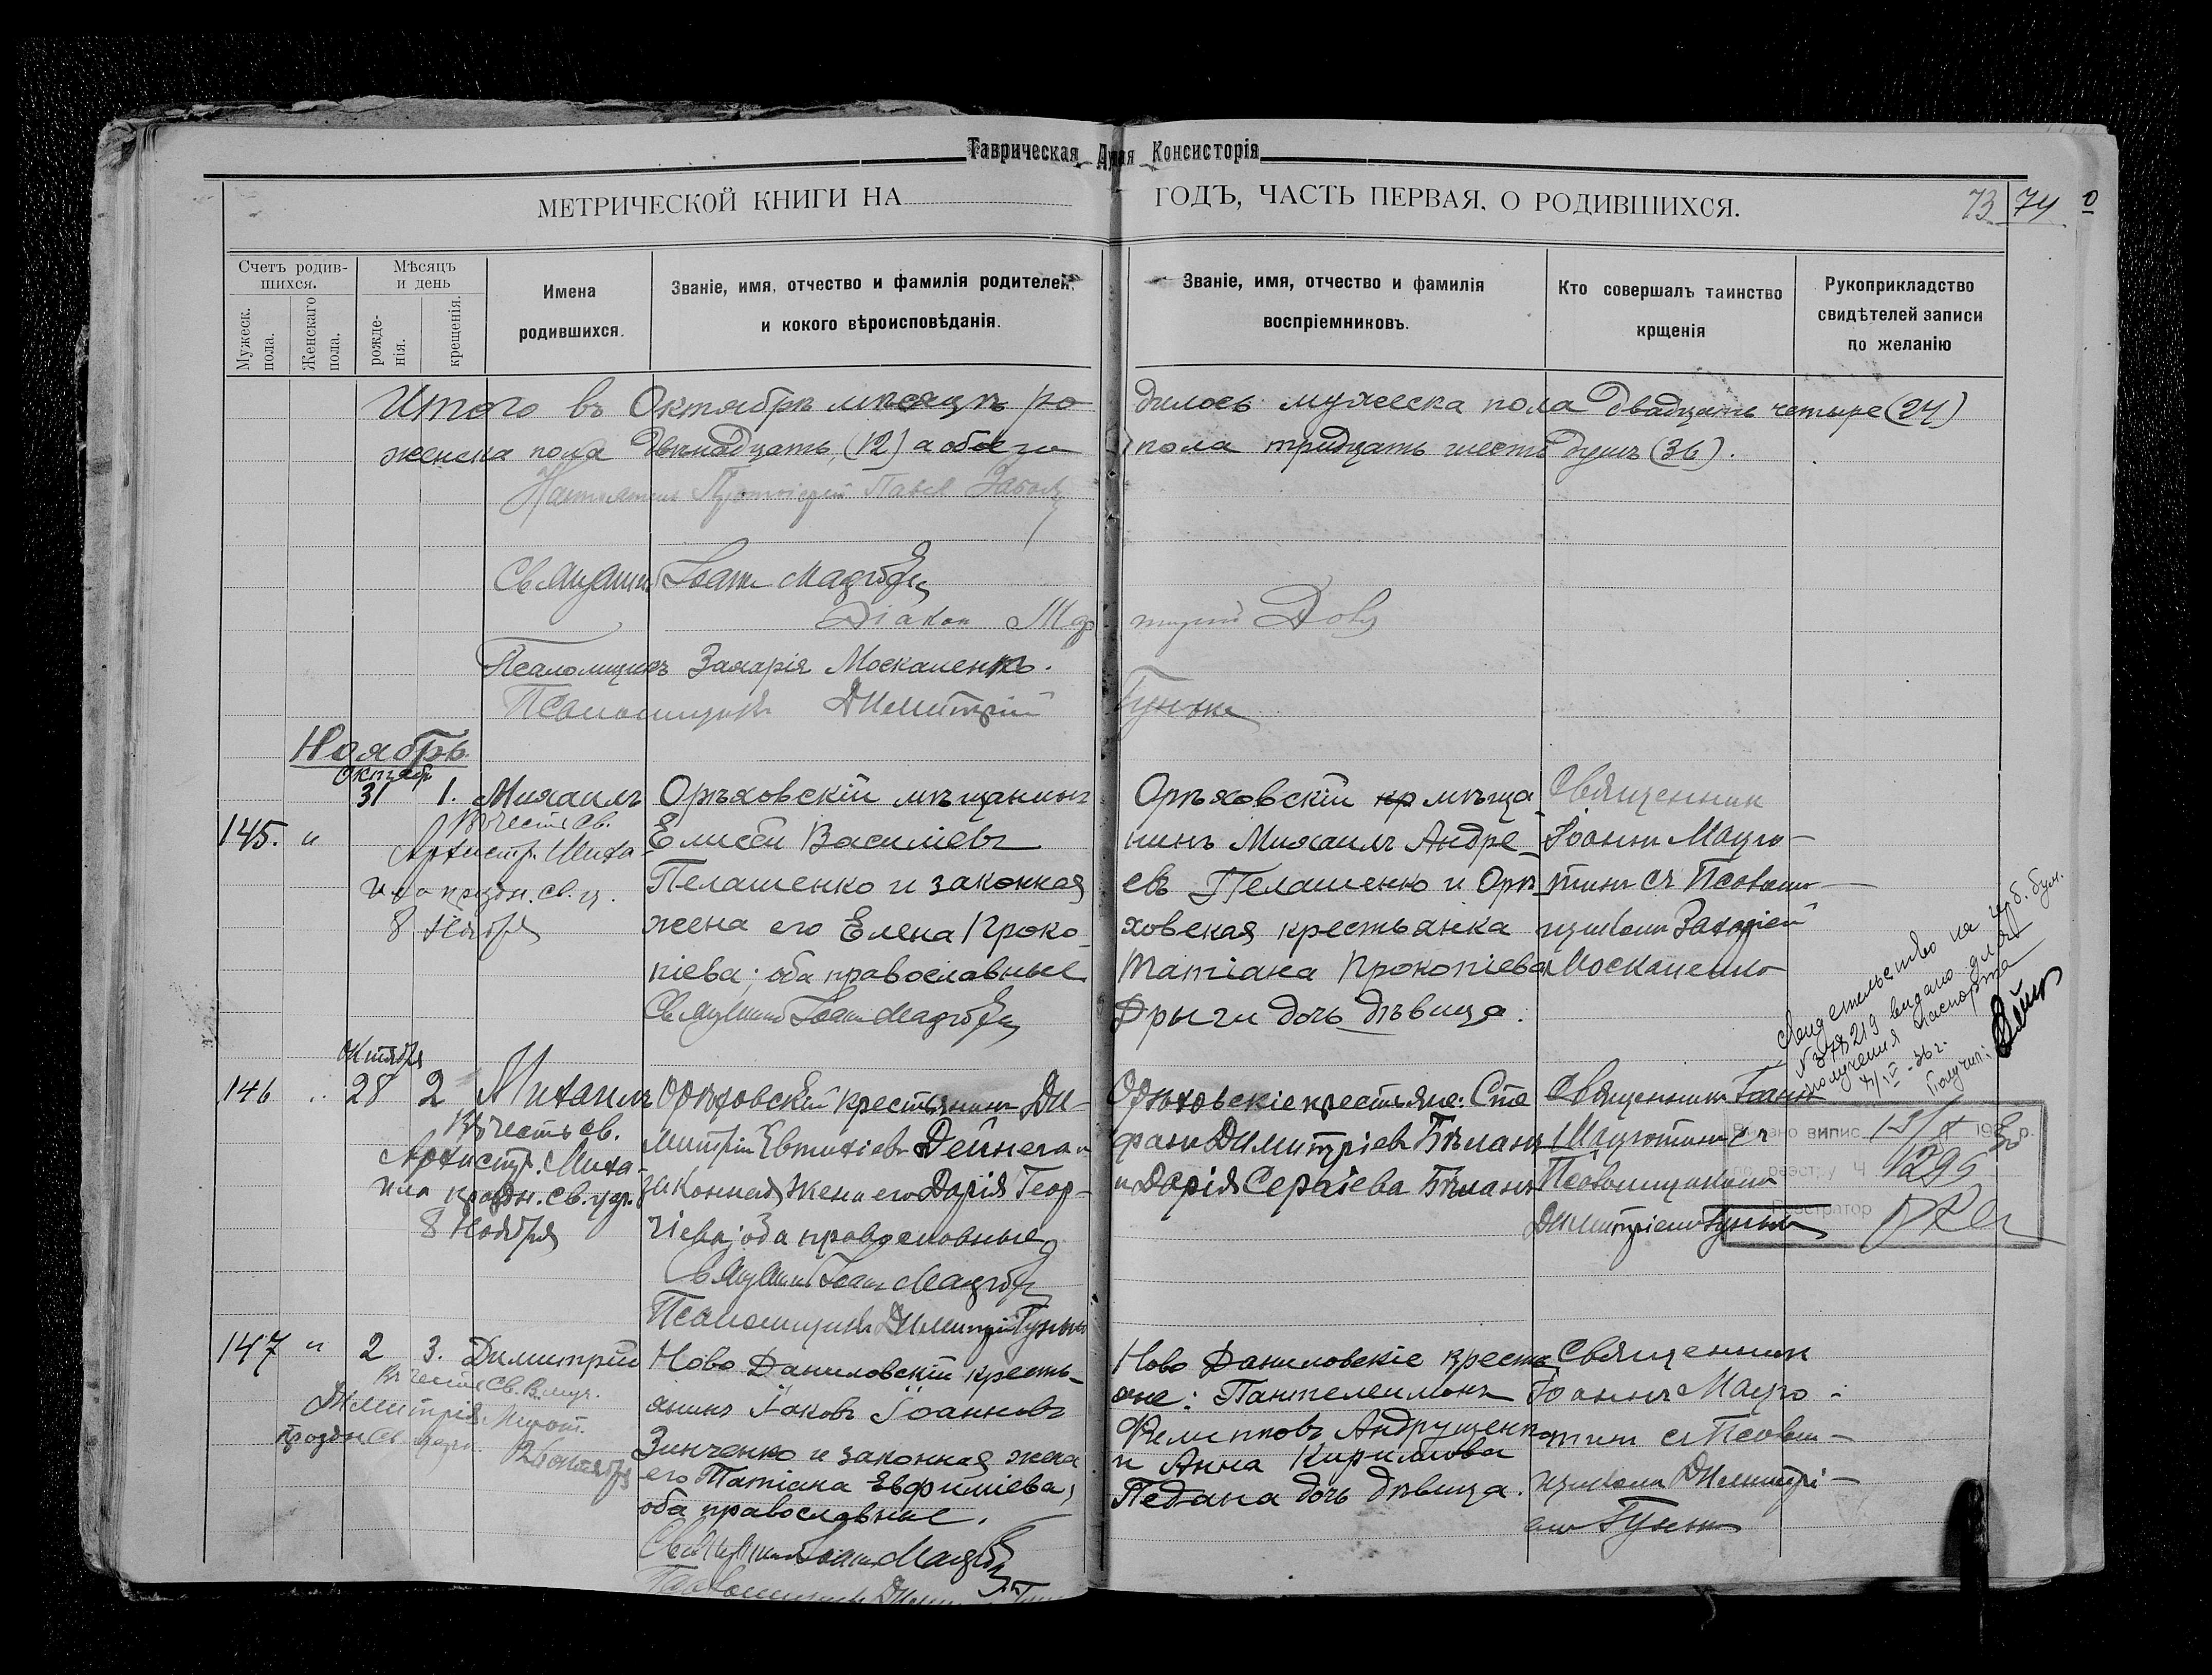 Таврическая Д ная Консисторія
МЕТРИЧЕСКОЙ КНИГИ НА ГОДЪ, ЧАСТЬ ПЕРВАЯ, О РОДИВШИХСЯ.
73 74
Счетъ родив-
шихся.
Мужеск. пола.
Женскаго пола.
Мѣсяцъ
и день
рожде-
нія.
крещенія.
Имена
родившихся.
Званіе, имя, отчество и фамилія родителей,
и кокого вѣроисповѣданія.
Званіе, имя, отчество и фамилія
воспріемниковъ.
Кто совершалъ таинство
крщенія
Рукоприкладство
свидѣтелей записи
по желанію
Итого въ Октябрѣ мѣсяцѣ ро
дилось мужеска пола двадцать четыре (24)
женска пола двѣнадцать (12) а обоего
пола тридцать шесть душъ (36).
Протоіерей Павел
Діакон
Псаломщикъ Захарія Москаленко.
Псаломщикъ Димитрій Гунька
Ноябрь
145. "
Октябр
31 1. Михаилъ
В честь Св.
Архистр. Миха
ила праздн. св. ц.
8 Ноября
Орѣховскій мѣщанинъ
Елисей Василіевъ
Пелашенко и законная
жена его Елена Проко-
піева; оба православные
Орѣховскій кр мѣща
нинъ Михаилъ Андре-
евъ Пелашенко и Орѣ-
ховская крестьянка
Татіана Прокопіева
Дрыги дочь дѣвица.
Священник
Іоанн
с Псалом-
щиком Захаріей
Москаленко
Свидетельство на герб. бум.
N 378219 выдано для
получения паспорта
Получил:
146 "
Октября
28 2 Михаилъ
В честь св.
Архистр. Миха-
ила праздн. св. цер.
8 Ноября
Орѣховскій крестьянин Ди-
митрій Евтихіев Дейнега и
законная жена его Дарія Геор-
гіева; оба православные
Псаломщикъ Димитрій Гунька
Орѣховскіе крестьяне: Сте
фанъ Димитріев Бѣланъ
и Дарія Сергіева Бѣланъ
Священник Іоанн
с
Псаломщиком
Димитріем Гунька
Видано випис.
по реестру Ч. 1295
Реєстратор
147 "
2 3. Димитрій
В честь Св. В. муч.
Димитрія Мирот.
праздн св. церк.
26 октября
Ново Даниловскій кресть-
янинъ Іаковъ Іоанновъ
Зинченко и законная жена
его Татіана Евфиміева;
оба православные.
Ново Даниловскіе кресть
яне: Пантелеимонъ
Филипповъ Андрущенко
и Анна Кириллова
Педана дочь дѣвица.
Священник
Іоаннъ
с Псалом-
щиком Димитрі-
ем Гунька